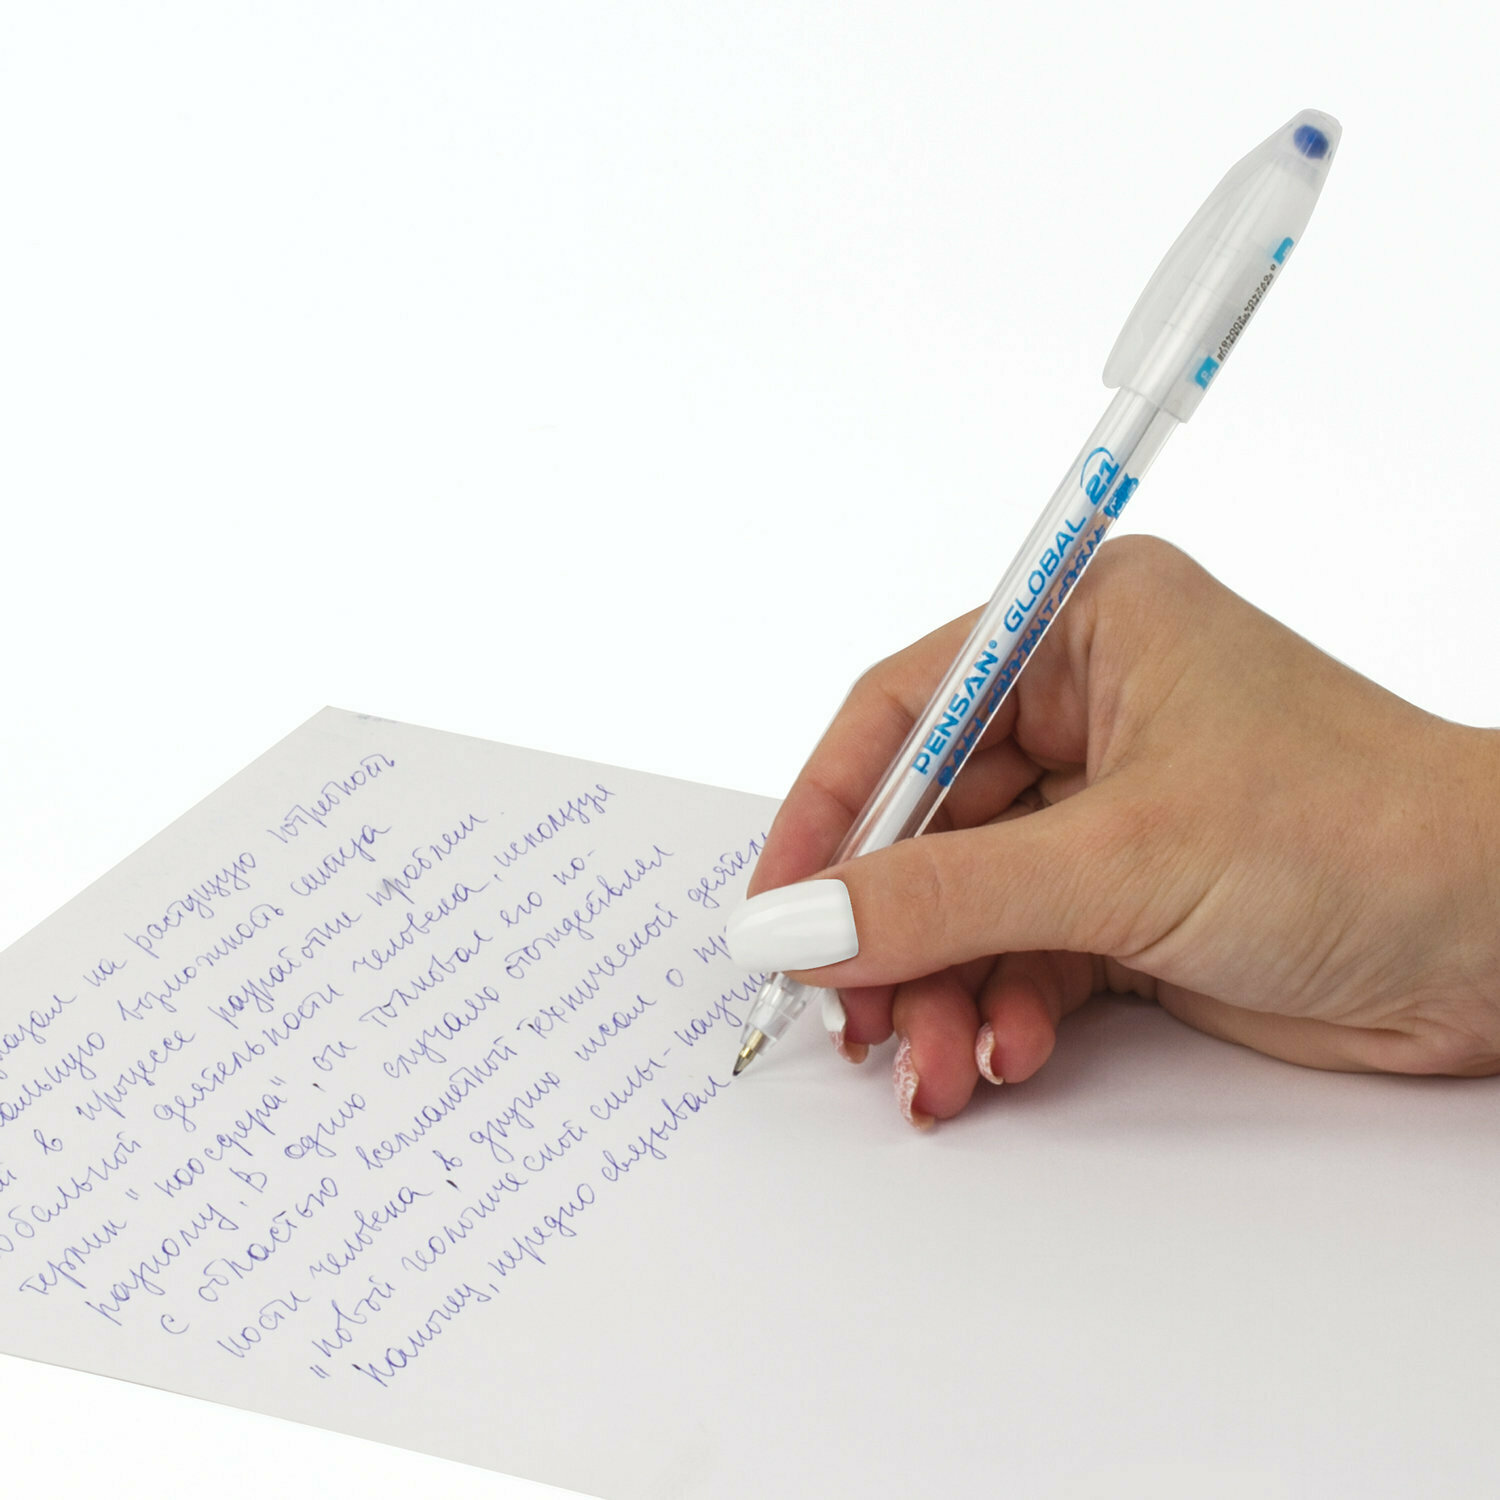 казал на растущую потребность
альную возможность синтеза
ий в процессе разработки проблем
обальной деятельности человека, используя
термин "ноосфера", он толковал его по-
разному. В одних случаях отождествлял
с областью всепланетной технической деятель
ности человека, в других писал о
"новой геологической силы - научн
разному, нередко связывал
PENSAN® GLOBAL 21